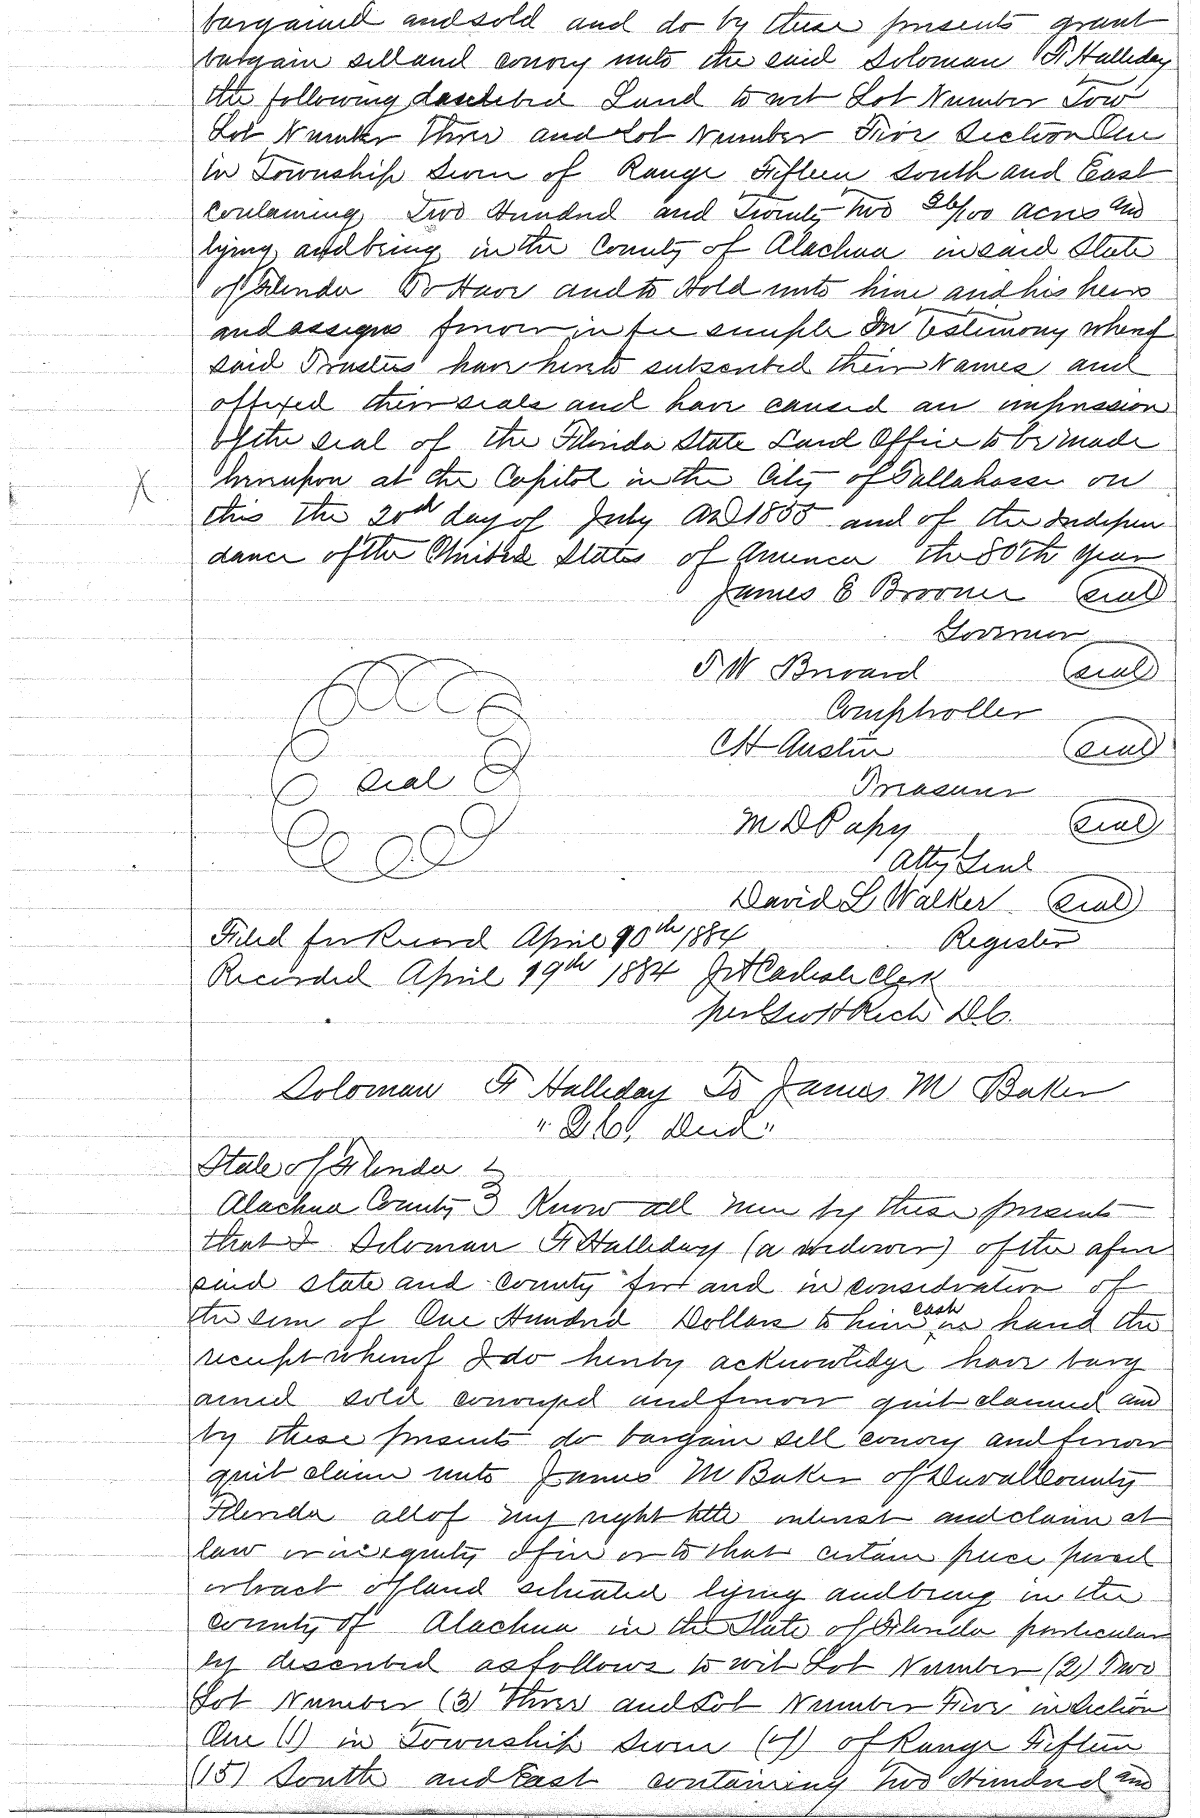 bargained and sold and do by these presents grant
bargain sell and convey unto the said Soloman F Halliday
the following described Land to wit Lot Number Tow
Lot Number Three and Lot Number Five Section One
in Township Seven of Range Fifteen South and East
containing Two Hundred and Twenty Two 36/100 acres and
lying and being in the County of Alachua in said State
of Florida To Have and to Hold unto him and his heirs
and assigns forever in fee simple In Testimony whereof
said Trustees have hereto subscribed their Names and
affixed their seals and have caused an impression
of the seal of the Florida State Land Office to be made
hereupon at the Capitol in the City of Tallahassee on
X
this the 20th day of July AD 1855 and of the Indepen
dance of the United States of America the 80th year
James E Broome seal
Governor
T W Brevard seal
Comptroller
C H Austin seal
Treasurer
seal
M D Papy seal
Atty Genl
David L Walker seal
Filed for Record April 10th 1884 Register
Recorded April 19th 1884 J A Carlisle Clerk
per Geo H Rich D.C.
Soloman F Halliday To James M Baker
"Q C, Deed"
State of Florida }
Alachua County } Know all men by these presents
that I Soloman F Halliday (a widower) of the afore
said state and county for and in consideration of
the sum of One Hundred Dollars to him cash in hand the
receipt whereof I do hereby acknowledge have barg
ained sold conveyed and forever quit claimed and
by these presents do bargain sell convey and forever
quit claim unto James M Baker of Duval County
Florida all of my right title interest and claim at
law or in equity of in or to that certain piece parcel
or tract of land situated lying and being in the
county of Alachua in the State of Florida particular
ly described as follows to wit Lot Number (2) Two
Lot Number (3) Three and Lot Number Five in Section
One (1) in Township Seven (7) of Range Fifteen
(15) South and East containing Two Hundred and